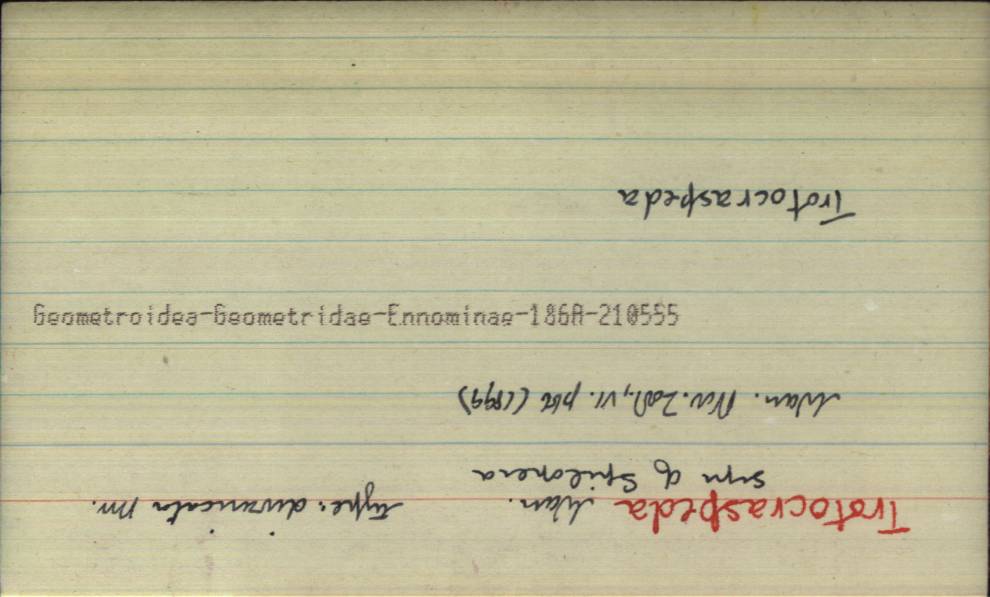 Trotocraspeda Warr. Type: divaricata Mr.
syn of Spilopera
Warr. Nov. Zool., VI. p62 (1899)
Geometroidea-Geometridae-Ennominae-186A-210555
Trotocraspeda